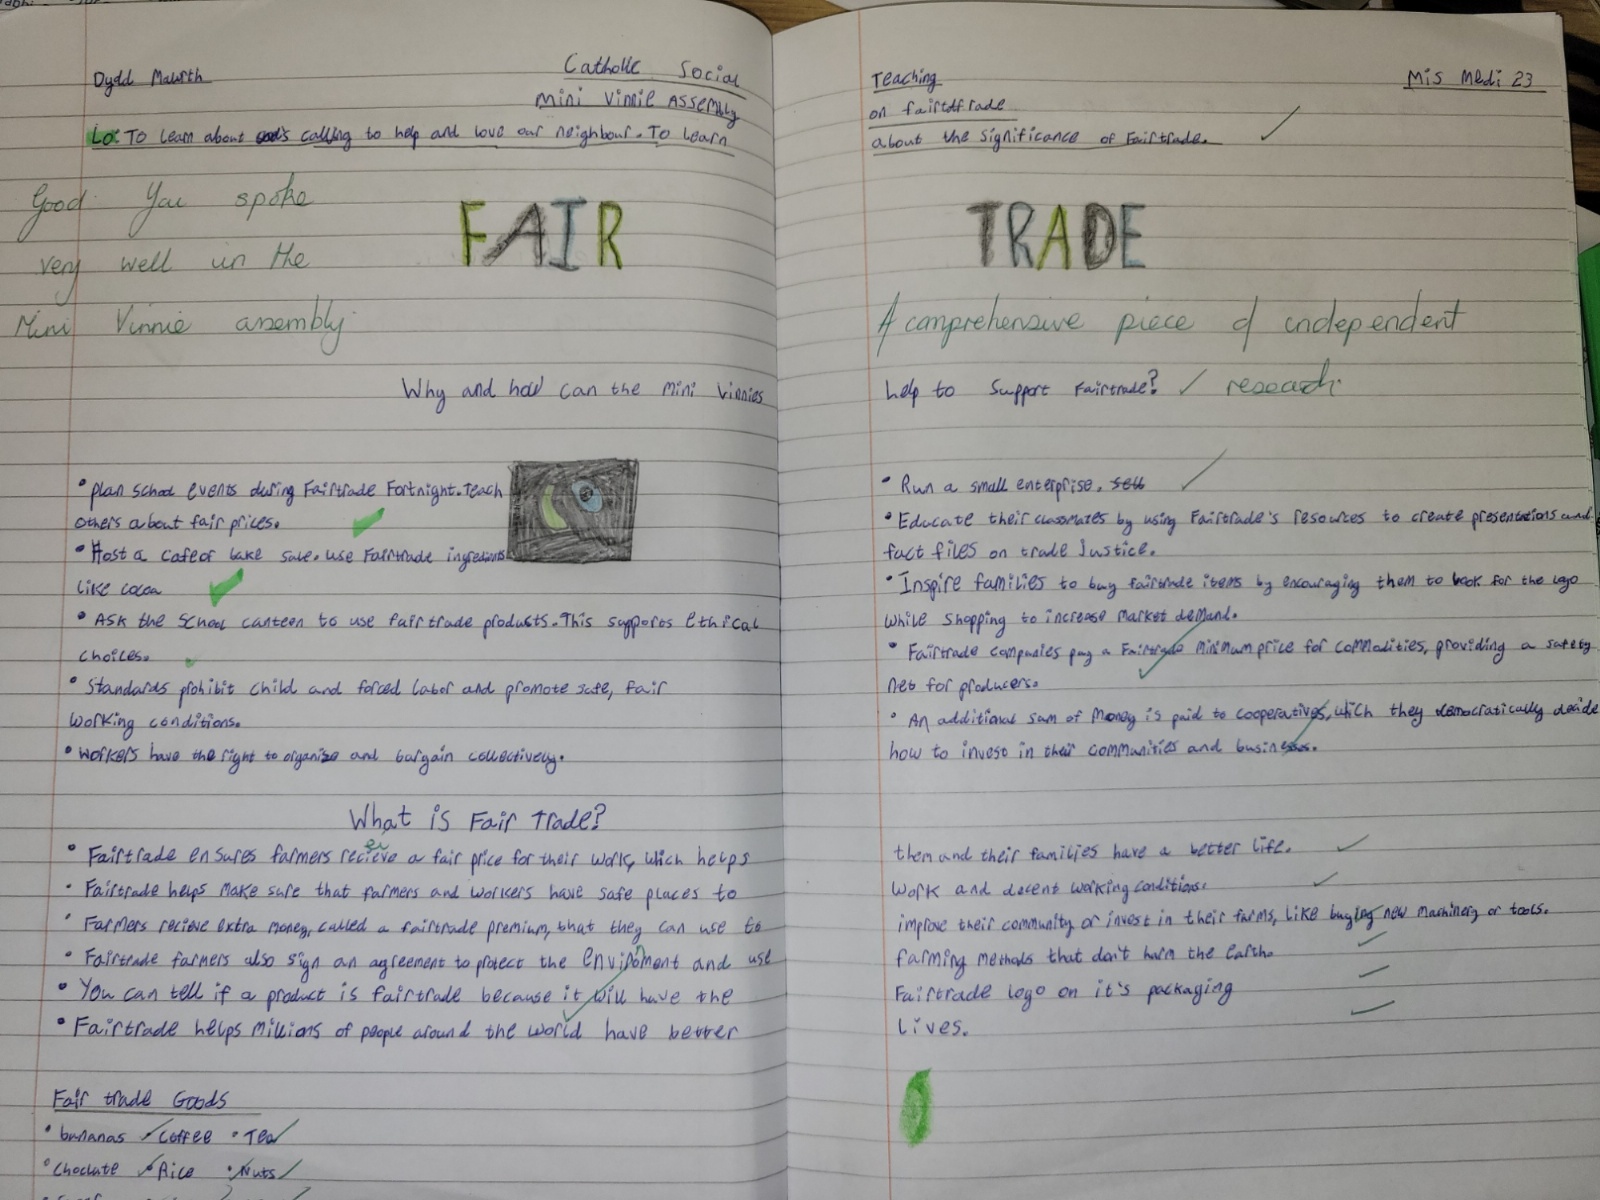 Dydd Mawrth
Catholic Social Teaching
Mis Medi 23
Mini Vinnie Assembly on fairtdfrade
Lo: To Learn about God's calling to help and love our neighbour. To Learn about the significance of Fairtrade.
Good. You spoke
very well in the
Mini Vinnie assembly.
FAIR TRADE
A comprehensive piece of independent
research.
Why and how can the Mini Vinnies help to Support Fairtrade?
• plan school events during Fairtrade Fortnight. Teach
others about fair prices.
• Host a cafe or bake sale. use Fairtrade ingredients
like cocoa
• Ask the school canteen to use fairtrade products. This supports ethical
choices.
• Standards prohibit child and forced labor and promote safe, fair
working conditions.
• workers have the right to organise and bargain collectively.
• Run a small enterprise. sell
• Educate their classmates by using Fairtrade's resources to create presentations and
fact files on trade justice.
• Inspire families to buy fairtrade items by encouraging them to look for the logo
while shopping to increase market demand.
• Fairtrade companies pay a Fairtrade minimum price for commodities, providing a safety
net for producers.
• An additional sum of money is paid to cooperatives, which they democratically decide
how to invest in their communities and business.
What is Fair Trade?
• Fairtrade ensures farmers recieve a fair price for their work, which helps them and their families have a better life.
ei
• Fairtrade helps make sure that farmers and workers have safe places to work and decent working conditions.
• Farmers recieve extra money, called a fairtrade premium, that they can use to improve their community or invest in their farms, like buying new machinery or tools.
• Fairtrade farmers also sign an agreement to protect the enviroment and use farming methods that don't harm the Earth.
n
• You can tell if a product is fairtrade because it will have the Fairtrade logo on it's packaging
• Fairtrade helps millions of people around the world have better lives.
Fair trade Goods
• bananas • Coffee • Tea
• Choclate • Rice • Nuts